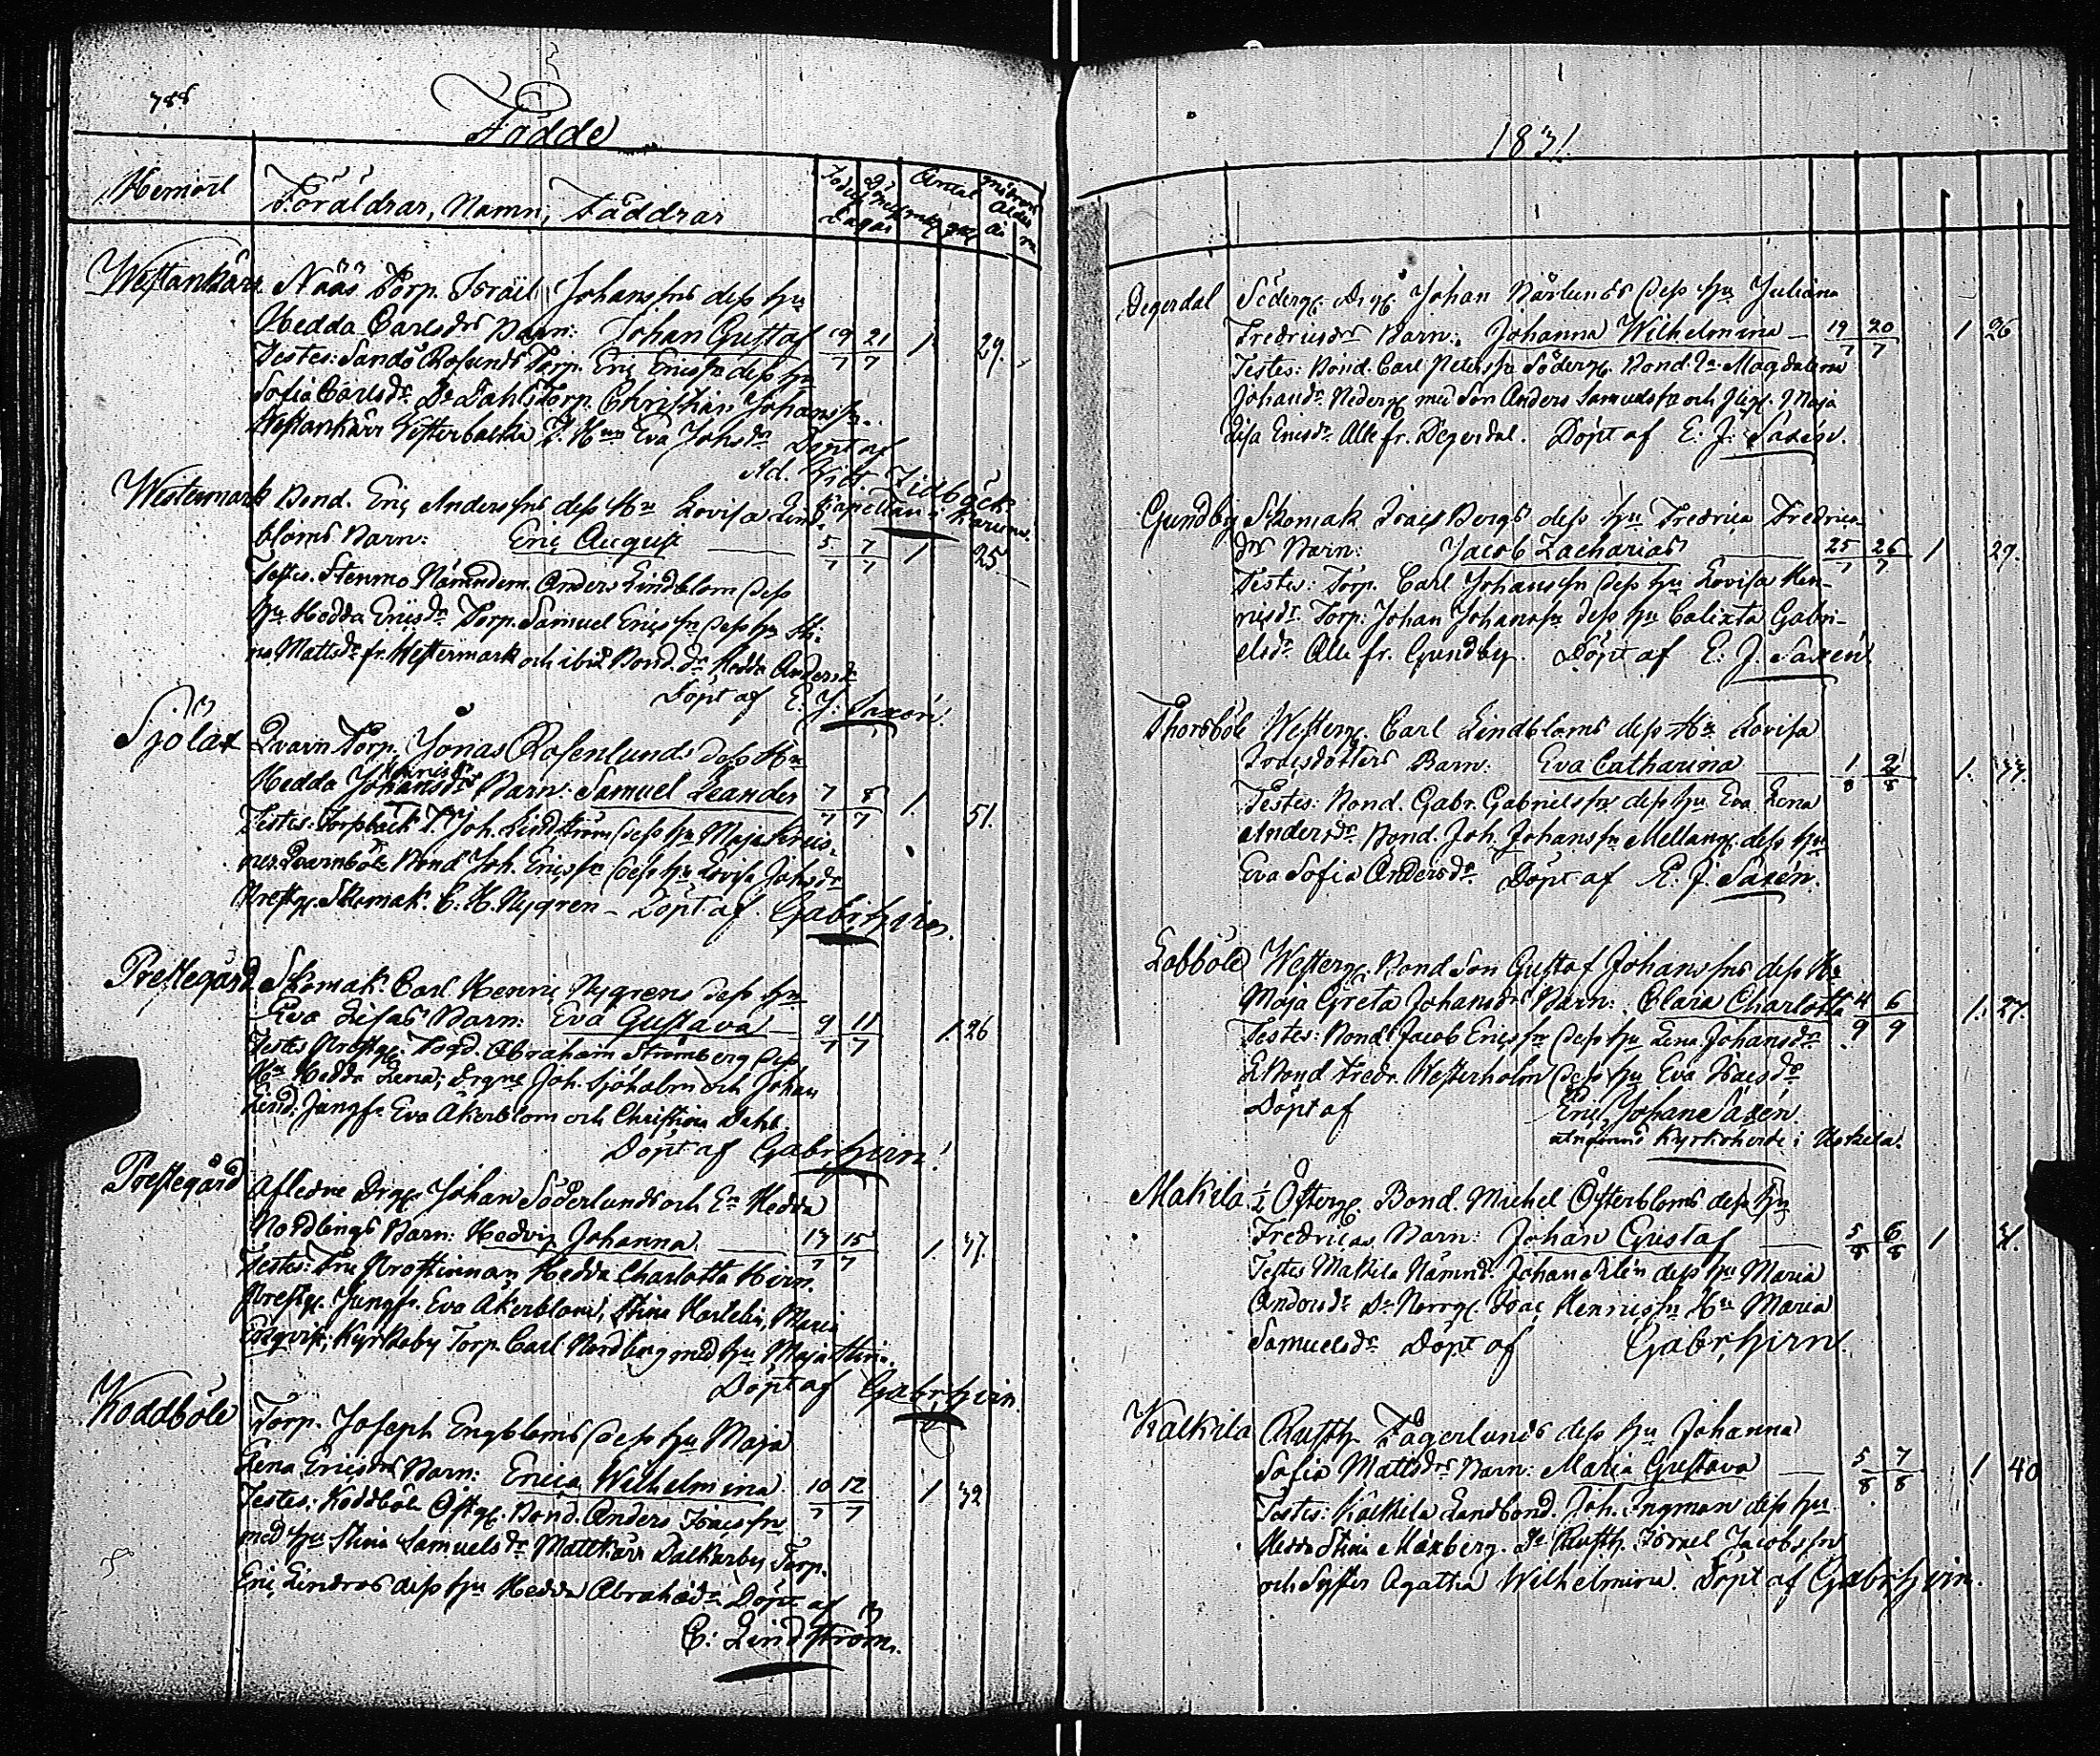 788
Födde
Hemort
Föräldrar, Namn, Faddrar
Födelse Döpelse
Dagar
Antal
Ålder
Westankärr Nääs Torp. Israël Johanssons dess Hu
Hedda Carlsdrs Barn: Johan Gustaf 19/7 21/7 1 29.
Testes: Sandö Rosends Torp. Eric Ericsson dess hu
Sofia Carlsdr. Do Dahls Torp. Christian Johansson.
Westankärr Eva Johsdr Döpt af
Ad. Wilh. Tidbäck
Kapellan i Karuna.
Westermark Bond. Eric Anderssons dess Hu Lovisa Lind-
bloms Barn: Eric August 5/7 7/7 1 25
Testes. Stenmo Nämndem. Anders Lindblom dess
hu Hedda Ericsdr. Torp. Samuel Ericsson dess hu Sti-
na Mattsdr. fr. Westermark och ibid Bond. dr. Hedda Andersdr
Döpt af E. J. Saxén.
Sjölax Qvarn Torp. Jonas Rosenlunds dess Hu
Henricsdr
Hedda Johansdrs Barn: Samuel Leander 7/7 8/7 1. 51.
Testes: Torpback T. Joh. Lindström dess hu Maja
Qvarnböle Bond Joh. Ericsson dess hu Lovisa Johsdr
Prestg. Skomak. C. H. Nygren – Döpt af Gabr. Hirn.
Prestegård Skomak. Carl Henric Nygrens dess hu
Eva Lisas Barn: Eva Gustava 9/7 11/7 1 26
Testes Prestg. Fogd. Abraham Strömberg dess
Hu Hedda Lena; Drgne Joh. Sjöholm och Johan
Lind; Jungfr Eva Åkerblom och Christina Dahl.
Döpt af Gabr. Hirn.
Prestegård Aflidne Drgn Johan Söderlunds och En Hedda
Nordlings Barn: Hedvig Johanna. 13/7 15/7 1. 37.
Testes: Fru Prostinnan Hedda Charlotta Hirn.
Prestg. Jungfr. Eva Åkerblom, Stina Hartelin, Maria
Kyrkoby Torp. Carl Nordberg med hu Maja Stina.
Döpt af Gabr. Hirn
Koddböle Torp. Joseph Engbloms dess hu Maja
Lena Ericsdrs Barn: Erica Wilhelmina 10/7 12/7 1 32
Testes: Koddböle Östg. Bond. Anders Isacsson
med hu Stina Samuelsdr. Mattkärr Dalkarby Torp.
Eric Lindros dess hu Hedda Abrahadr. Döpt af
C: Lindström.
1831.
Degerdal Söderg. Drg. Johan Närlunds dess hu Juliana
Fredricsdrs Barn: Johanna Wilhelmina 19/7 20/7 1 26
Testes: Bond. Carl Petersson Söderg. Bond. Da Magdalena
Johansdr. Nederg med Son Anders Samuelsson och Pig. Maja
Lisa Ericsdr. Alle fr. Degerdal. Döpt af E: J: Saxén.
Gundby Skomak Isaac Bergs dess hu Fredrica Fredrics-
drs Barn: Jacob Zacharias 25/7 26/7 1 29.
Testes: Torp. Carl Johansson dess hu Lovisa Hen-
ricsdr. Torp. Johan Johansson dess hu Calixta Gabri-
elsdr. Alle fr. Gundby. Döpt af E: J. Saxén.
Thorsböle Westerg. Carl Lindbloms dess Hu Lovisa
Isacsdotters Barn: Eva Catharina 1/8 2/8 1. 33.
Testes: Bond. Gabr. Gabrielsson dess hu Eva Lena
Andersdr Bond. Joh. Johansson Mellang. dess hu
Eva Sofia Andersdr. Döpt af E: J. Saxén.
Labböle Westerg. Bond Son Gustaf Johanssons dess Hu
Maja Greta Johansdrs Barn: Clara Charlotta 4/9 6/9 1. 27.
Testes: Bond Jacob Ericsson dess hu Lena Johansdr.
L.Bond Fredr. Westerholm dess hu Eva Isacsdr
Döpt af Eric Johan Saxén
utnämnd Kyrkoherde i Uskela.
Makila 1/2 Österg. Bond. Michel Österbloms dess hu
Fredricas Barn: Johan Gustaf 5/8 6/8 1 31.
Testes Makila Nämnd. Johan dess hu Maria
Andersdr Do Norrg. Isac Henricsson Hu Maria
Samuelsdr Döpt af Gabr. Hirn.
Kalkila Rusth. Fagerlunds dess hu Johanna
Sofia Mattsdrs Barn: Maria Gustava 5/8 7/8 1 40
Testes: Kalkila Landbond. Joh. Ingman dess hu
Hedda Stina Maxberg. Do Rusth. Israel Jacobsson
och Syster Agatha Wilhelmina. Döpt af Gabr. Hirn.